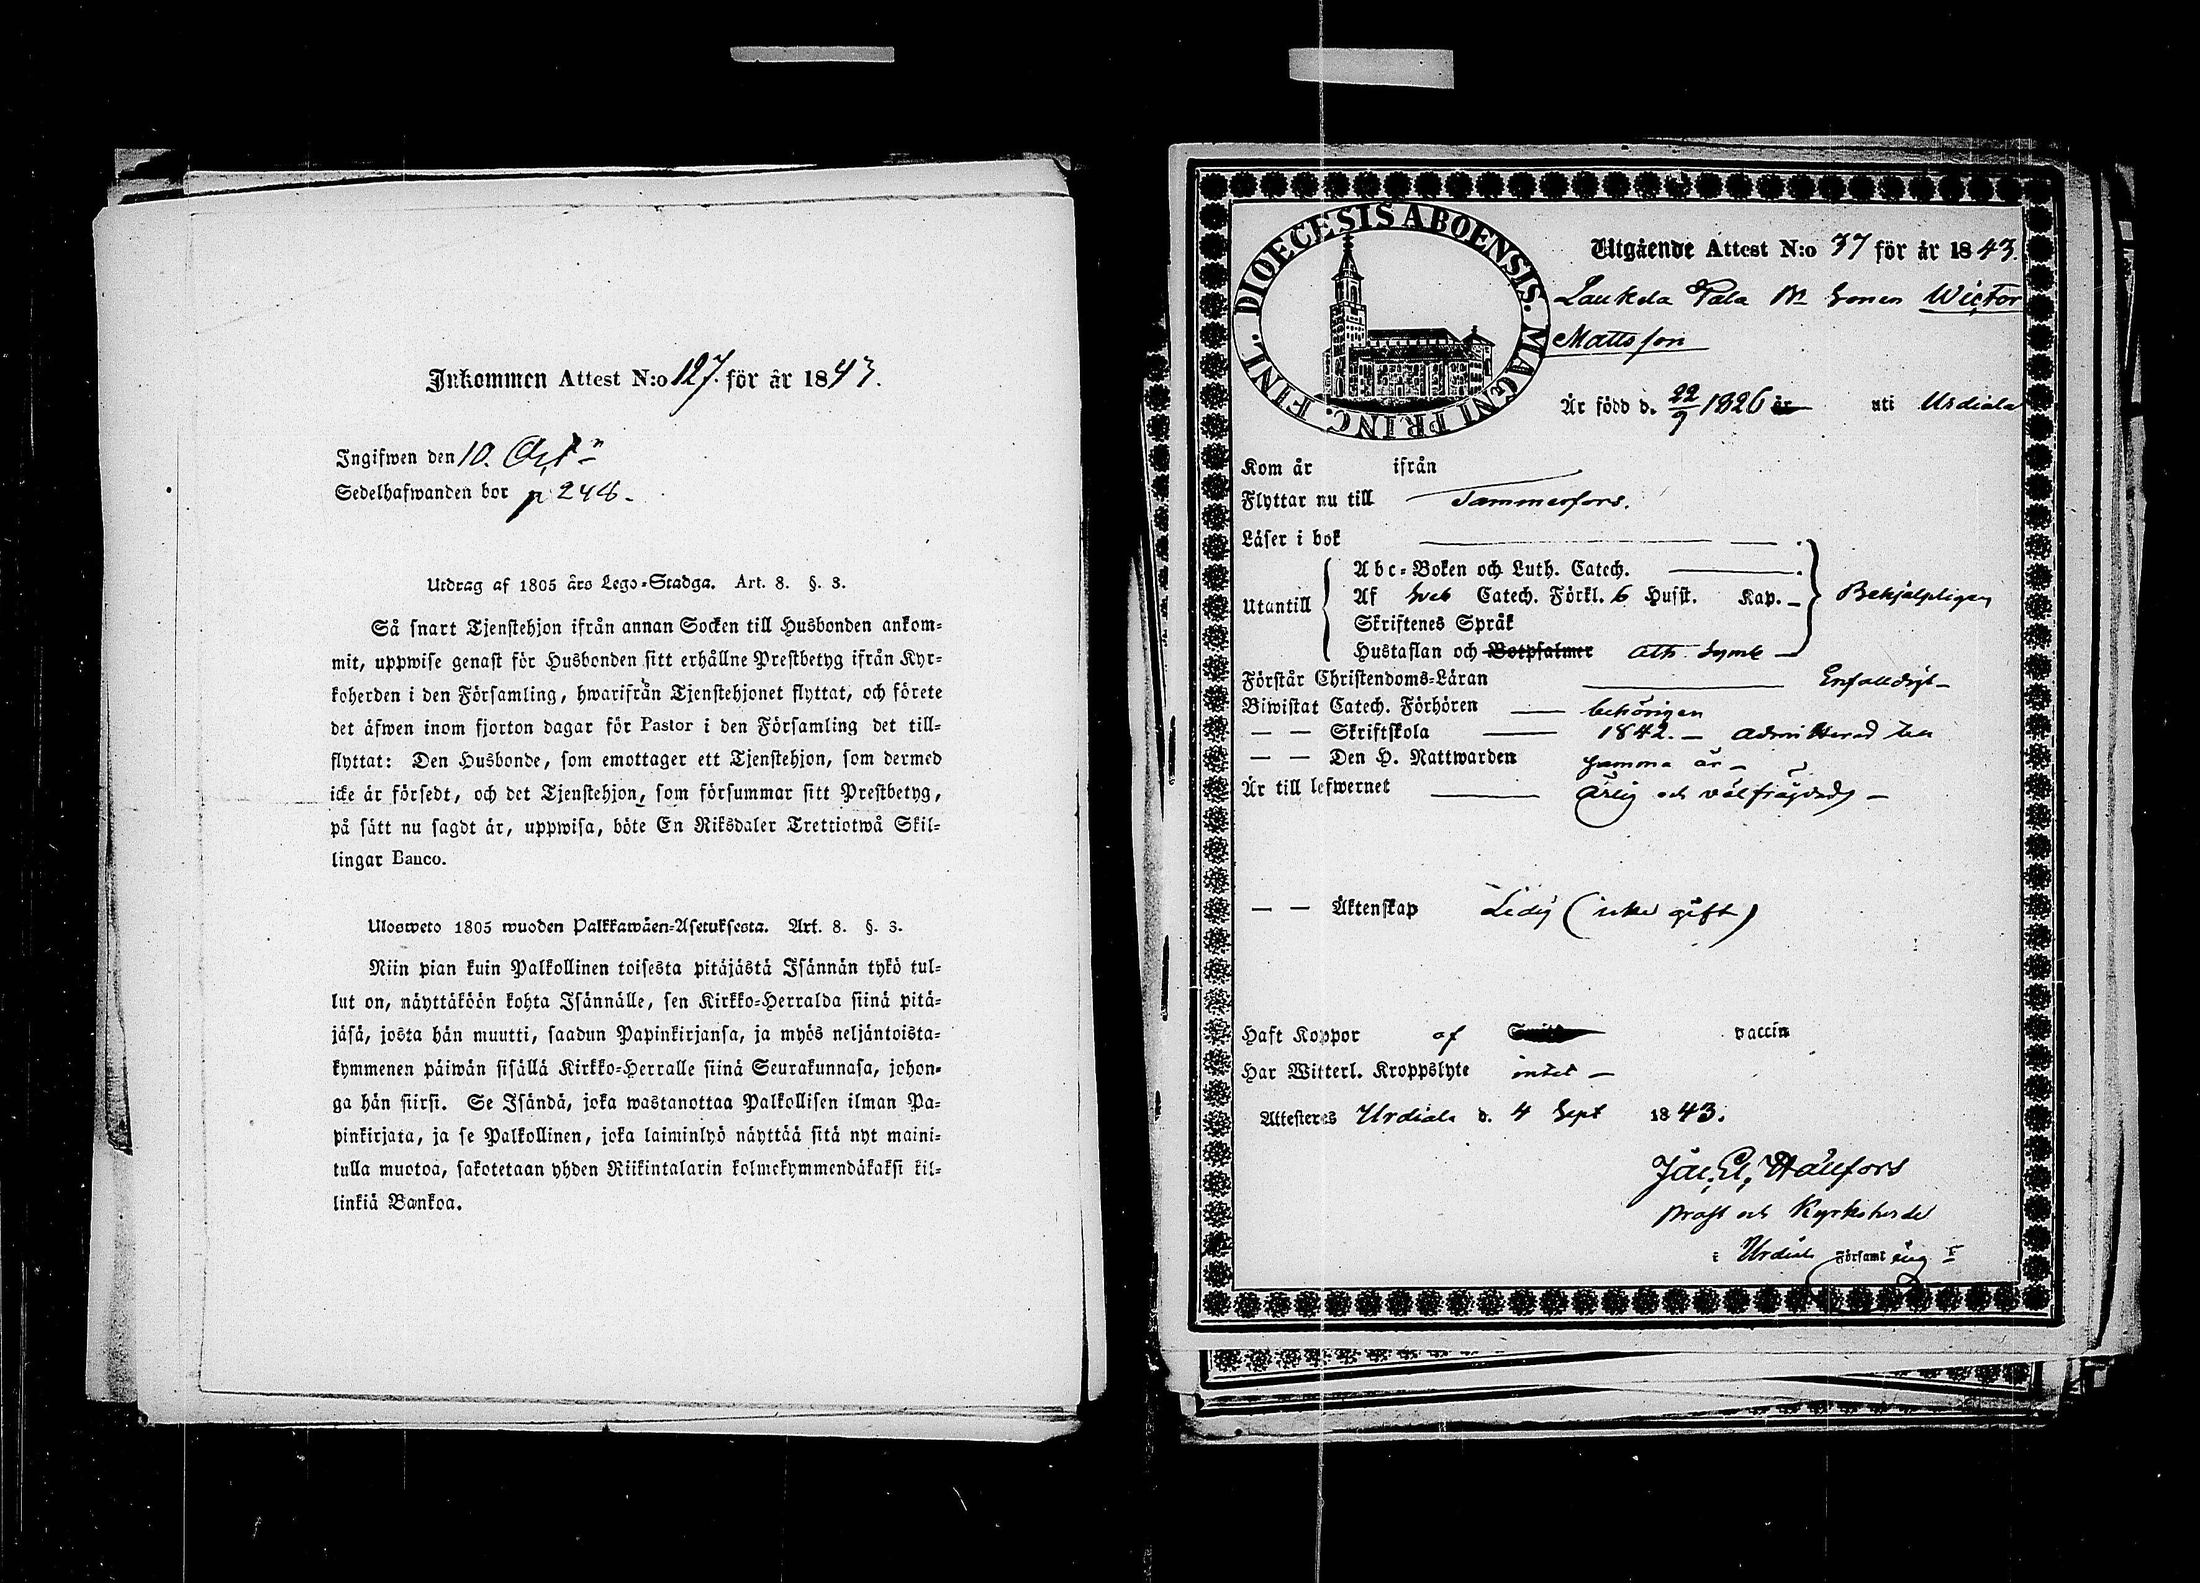 Inkommen Attest N:o 127. för år 1843.
Ingifwen den 10. Oct:
Sedelhafwanden bor p 248.
Utdrag af 1805 års Lego-Stadga. Art. 8. §. 3.
Så snart Tjenstehjon ifrån annan Socken till Husbonden ankom-
mit, uppwise genast för Husbonden sitt erhållne Prestbetyg ifrån Kyr-
koherden i den Församling, hwarifrån Tjenstehjonet flyttat, och förete
det äfwen inom fjorton dagar för Pastor i den Församling det till-
flyttat: Den Husbonde, som emottager ett Tjenstehjon, som dermed
icke är försedt, och det Tjenstehjon, som försummar sitt Prestbetyg,
på sätt nu sagdt är, uppwisa, böte En Riksdaler Trettiotwå Skil-
lingar Banco.
Ulosweto 1805 wuoden Palkkawäen-Asetuksesta. Art. 8. §. 3.
Niin pian kuin Palkollinen toisesta pitäjästä Isännän tykö tul-
lut on, näyttäköön kohta Isännälle, sen Kirkko-Herralda siinä pitä-
jäsä, josta hän muutti, saadun Papinkirjansa, ja myös neljäntoista-
kymmenen päiwän sisällä Kirkko-Herralle siinä Seurakunnasa, johon-
ga hän siirsi. Se Isändä, joka wastanottaa Palkollisen ilman Pa-
pinkirjata, ja se Palkollinen, joka laiminlyö näyttää sitä nyt maini-
tulla muotoa, sakotetaan yhden Riikintalarin kolmekymmendäkaksi kil-
linkiä Bankoa.
DIOECESIS ABOENSIS. MAGNI PRINC. FINL.
Utgående Attest N:o 37 för år 1843.
Laukela Pala Bd Sonen Wictor
Mattsson
Är född d. 22/9 1826 år uti Urdiala
Kom år ifrån
Flyttar nu till Tammerfors.
Läser i bok
Abc-Boken och Luth. Catech.
Utantill Af Sveb Catech. Förkl. 6 Husst. Kap. Behjelpligen
Skriftenes Språk
Hustaflan och Botpsalmer Ath. Symb
Förstår Christendoms-Läran Enfalldigt
Biwistat Catech. Förhören behörigen
— — Skriftskola 1842. — admitterad
— — Den H. Nattwarden samma år —
Är till lefwernet Ärlig och välfrägdad —
— — Äktenskap Ledig (icke gift)
Haft Koppor af vaccin
Har Witterl. Kroppslyte intet —
Attesteres Urdiala d. 4 Sept 1843.
Jac. El. Hällfors
Prost och Kyrkoherde
i Urdiala Församling